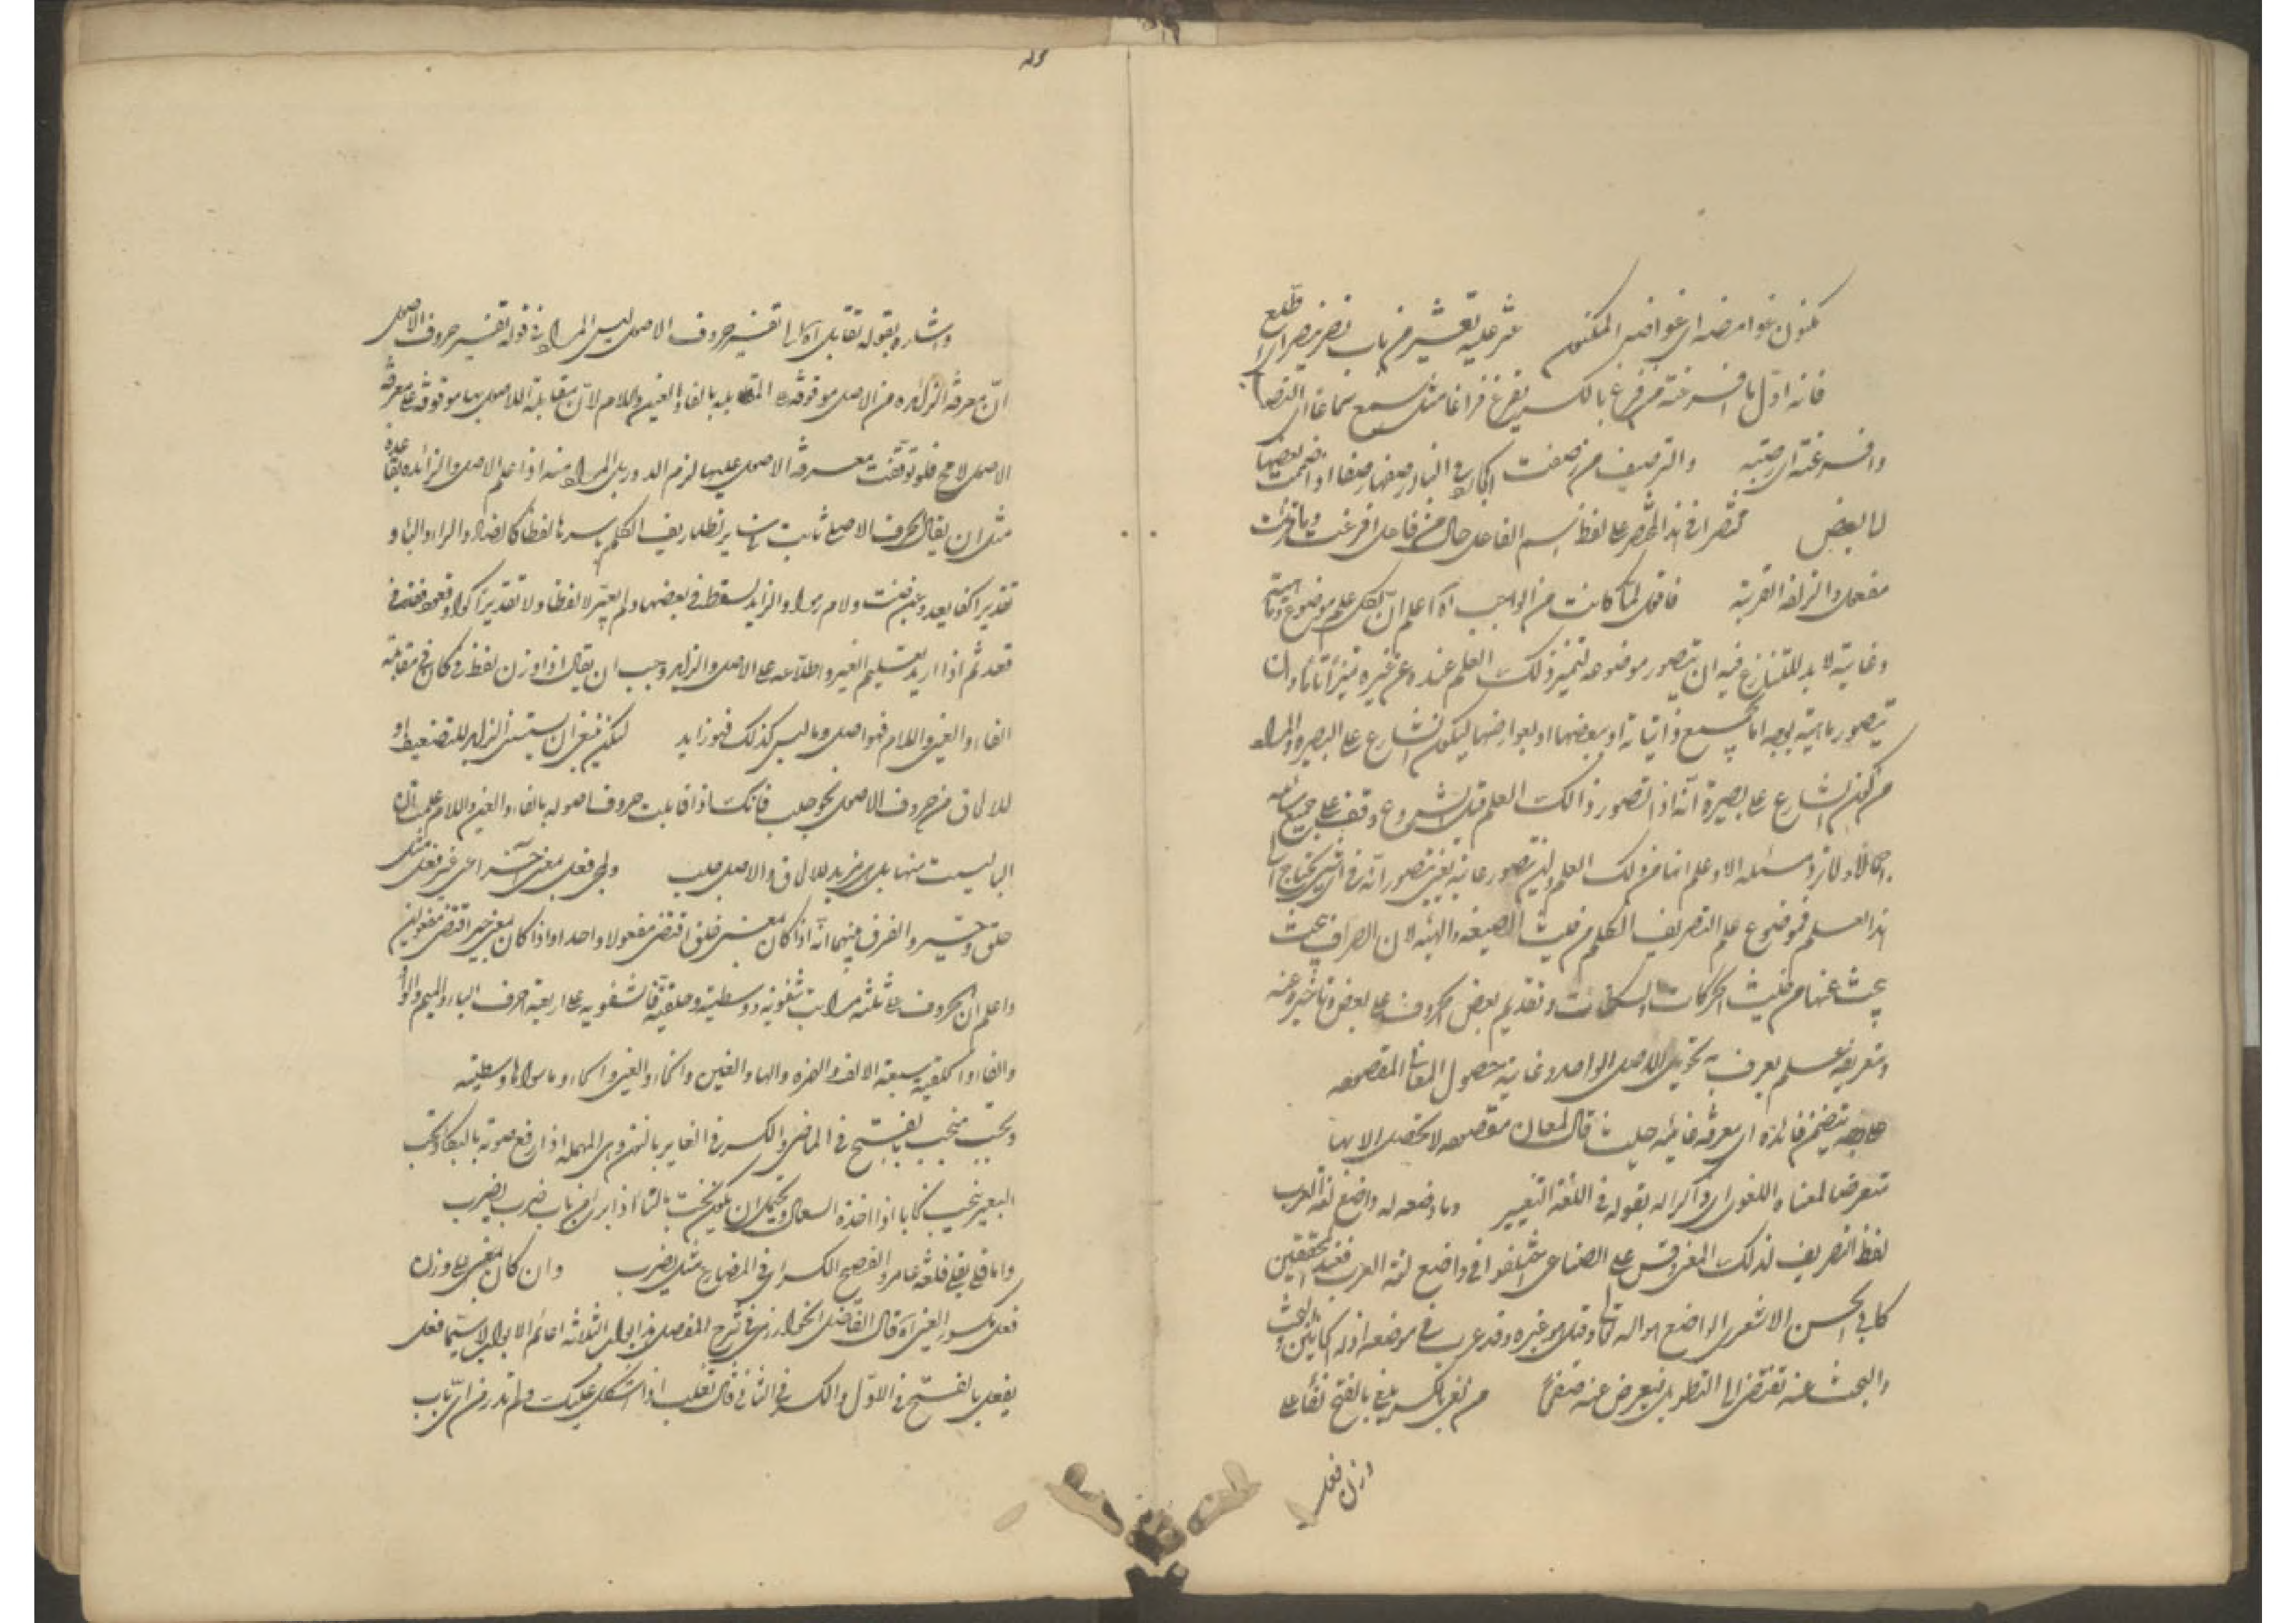 مكنون غوامضه اى غوامضه المكنون عثر عليه يعثر من باب نصر ينصر اى اطلع
فانه اول ما افرغته من فرغ بالكسر يفرغ فراغا مثل سمع سماعا اى
وافرغته اى صببته والترصيف من رصفت الحجارة في البناء ارصفها رصفا اذا ضممت بعضها
الى بعض مختصرا في هذا المختصر على لفظ اسم الفاعل حال من فاعل افرغت
مفعول والزلفة القربة فاقول لما كانت من الواجب اه اعلم ان لكل علم موضوع وماهية
وغاية لا بد للشارع فيه ان يتصور موضوعه ليتميز ذلك العلم عنده عن غيره تميزا تاما وان
يتصور ماهيته بوجه اما بجميع ذاتياته او ببعضها او بعوارضها ليكون الشارع على البصيرة والمراد
من كون الشارع على بصيرة انه اذا تصور ذالك العلم قبل الشروع وقف على جميع مسائله
اجمالا ولا ترد مسئلة الا وعلم انها من ذلك العلم وان يتصور غايته يعنى يتصور انه في اى شئ يحتاج الى
هذا العلم فموضوع علم التصريف الكلم من حيث الصيغة والهيئة لان الصراف يبحث
يبحث عنها من حيث الحركات والسكنات وتقديم بعض الحروف على بعض وتاخيره عنه
وتعريفه علم يعرف به تحويل الاصل الواحد وغايته حصول المعانى المقصودة
على وجه يتضمن فائدته اى معرفة فائدته حيث قال لمعان مقصودة لا تحصل الا بها
متعرضا لمعناه اللغوى اى ذاكرا له بقوله في اللغة التغيير وما وضعه له واضع لغة العرب
لفظ التصريف لذلك المعنى وقس على الصناعى اختلفوا في واضع لغة العرب فعند المحققين
كابى الحسن الاشعرى الواضع هو الله تعالى وقيل هو غيره وقد عرف في موضعه
والبحث عنه يقتضى الى التطويل فيعرض عنه صفحا من لغى بالكسر يلغى بالفتح لغا على
وزن فعل
واشار بقوله تقابل اه الى تفسير حروف الاصول ليس المراد في قوله تفسير حروف الاصول
ان معرفة الزائدة من الاصلى موقوفة على المقابلة بالفاء والعين واللام لان مقابلة الاصول بها موقوفة على معرفة
الاصول لا مح فلو توقفت معرفة الاصول عليها لزم الدور بل المراد منه اذا علم الاصلى والزائدة بقاعدة
مثل ان يقال الحرف الاصلى ثابت في تصاريف الكلم باسرها لفظا كالضاد والراء والباء او
تقديرا كفا يعد وعين قلت ولام رموا والزايد يسقط في بعضها ولم يعتبر لا لفظا ولا تقديرا كواو قعود فقده في
قعد ثم اذا اريد تعليم الغير واطلاعه على الاصلى والزايد وجب ان يقال اذا وزن لفظ فما كان في مقابلة
الفاء والعين واللام فهو اصلى وما ليس كذلك فهو زايد لكن ينبغى ان يستثنى الزايد للتضعيف او
للالحاق من حروف الاصول نحو جلبب فانك اذا قابلت حروف اصوله بالفاء والعين واللام علمت ان
الباء ليست منها بل هى مزيد للالحاق والاصل جلب ولمجى فعل بمعنى آخر اعنى غير فعل مثل
خلق وصير والفرق بينهما انه اذا كان بمعنى خلق اقتضى مفعولا واحدا واذا كان بمعنى صير اقتضى مفعولين
واعلم ان الحروف على ثلثة مراتب شفوية ووسطية وحلقية فالشفوية على اربعة احرف الباء والميم والواو
والفاء والحلقية سبعة الالف والهمزة والهاء والعين والخاء والغين والحاء وما سواها وسطية
ونحب ينحب بالفتح في الماضى والكسر في الغابر بالنون وبالحاء المهملة اذا رفع صوته بالبكاء ونحب
البعير ينحب نحابا اذا اخذه السعال ويحتمل ان يكون نحت بالتاء اذا برى من باب ضرب يضرب
واما قلى يقلى فلغة عامر والفصيح الكسر اى في المضارع مثل يضرب وان كان ماضيه على وزن
فعل مكسور العين اه قال الفاضل الخوارزمى في شرح المفصل هذه ابواب الثلاثة دعائم الابواب لاسيما فعل
يفعل بالفتح في الاول والكسر في الثانى قال ثعلب اذا اشكل عليك ولم تدر من اى باب